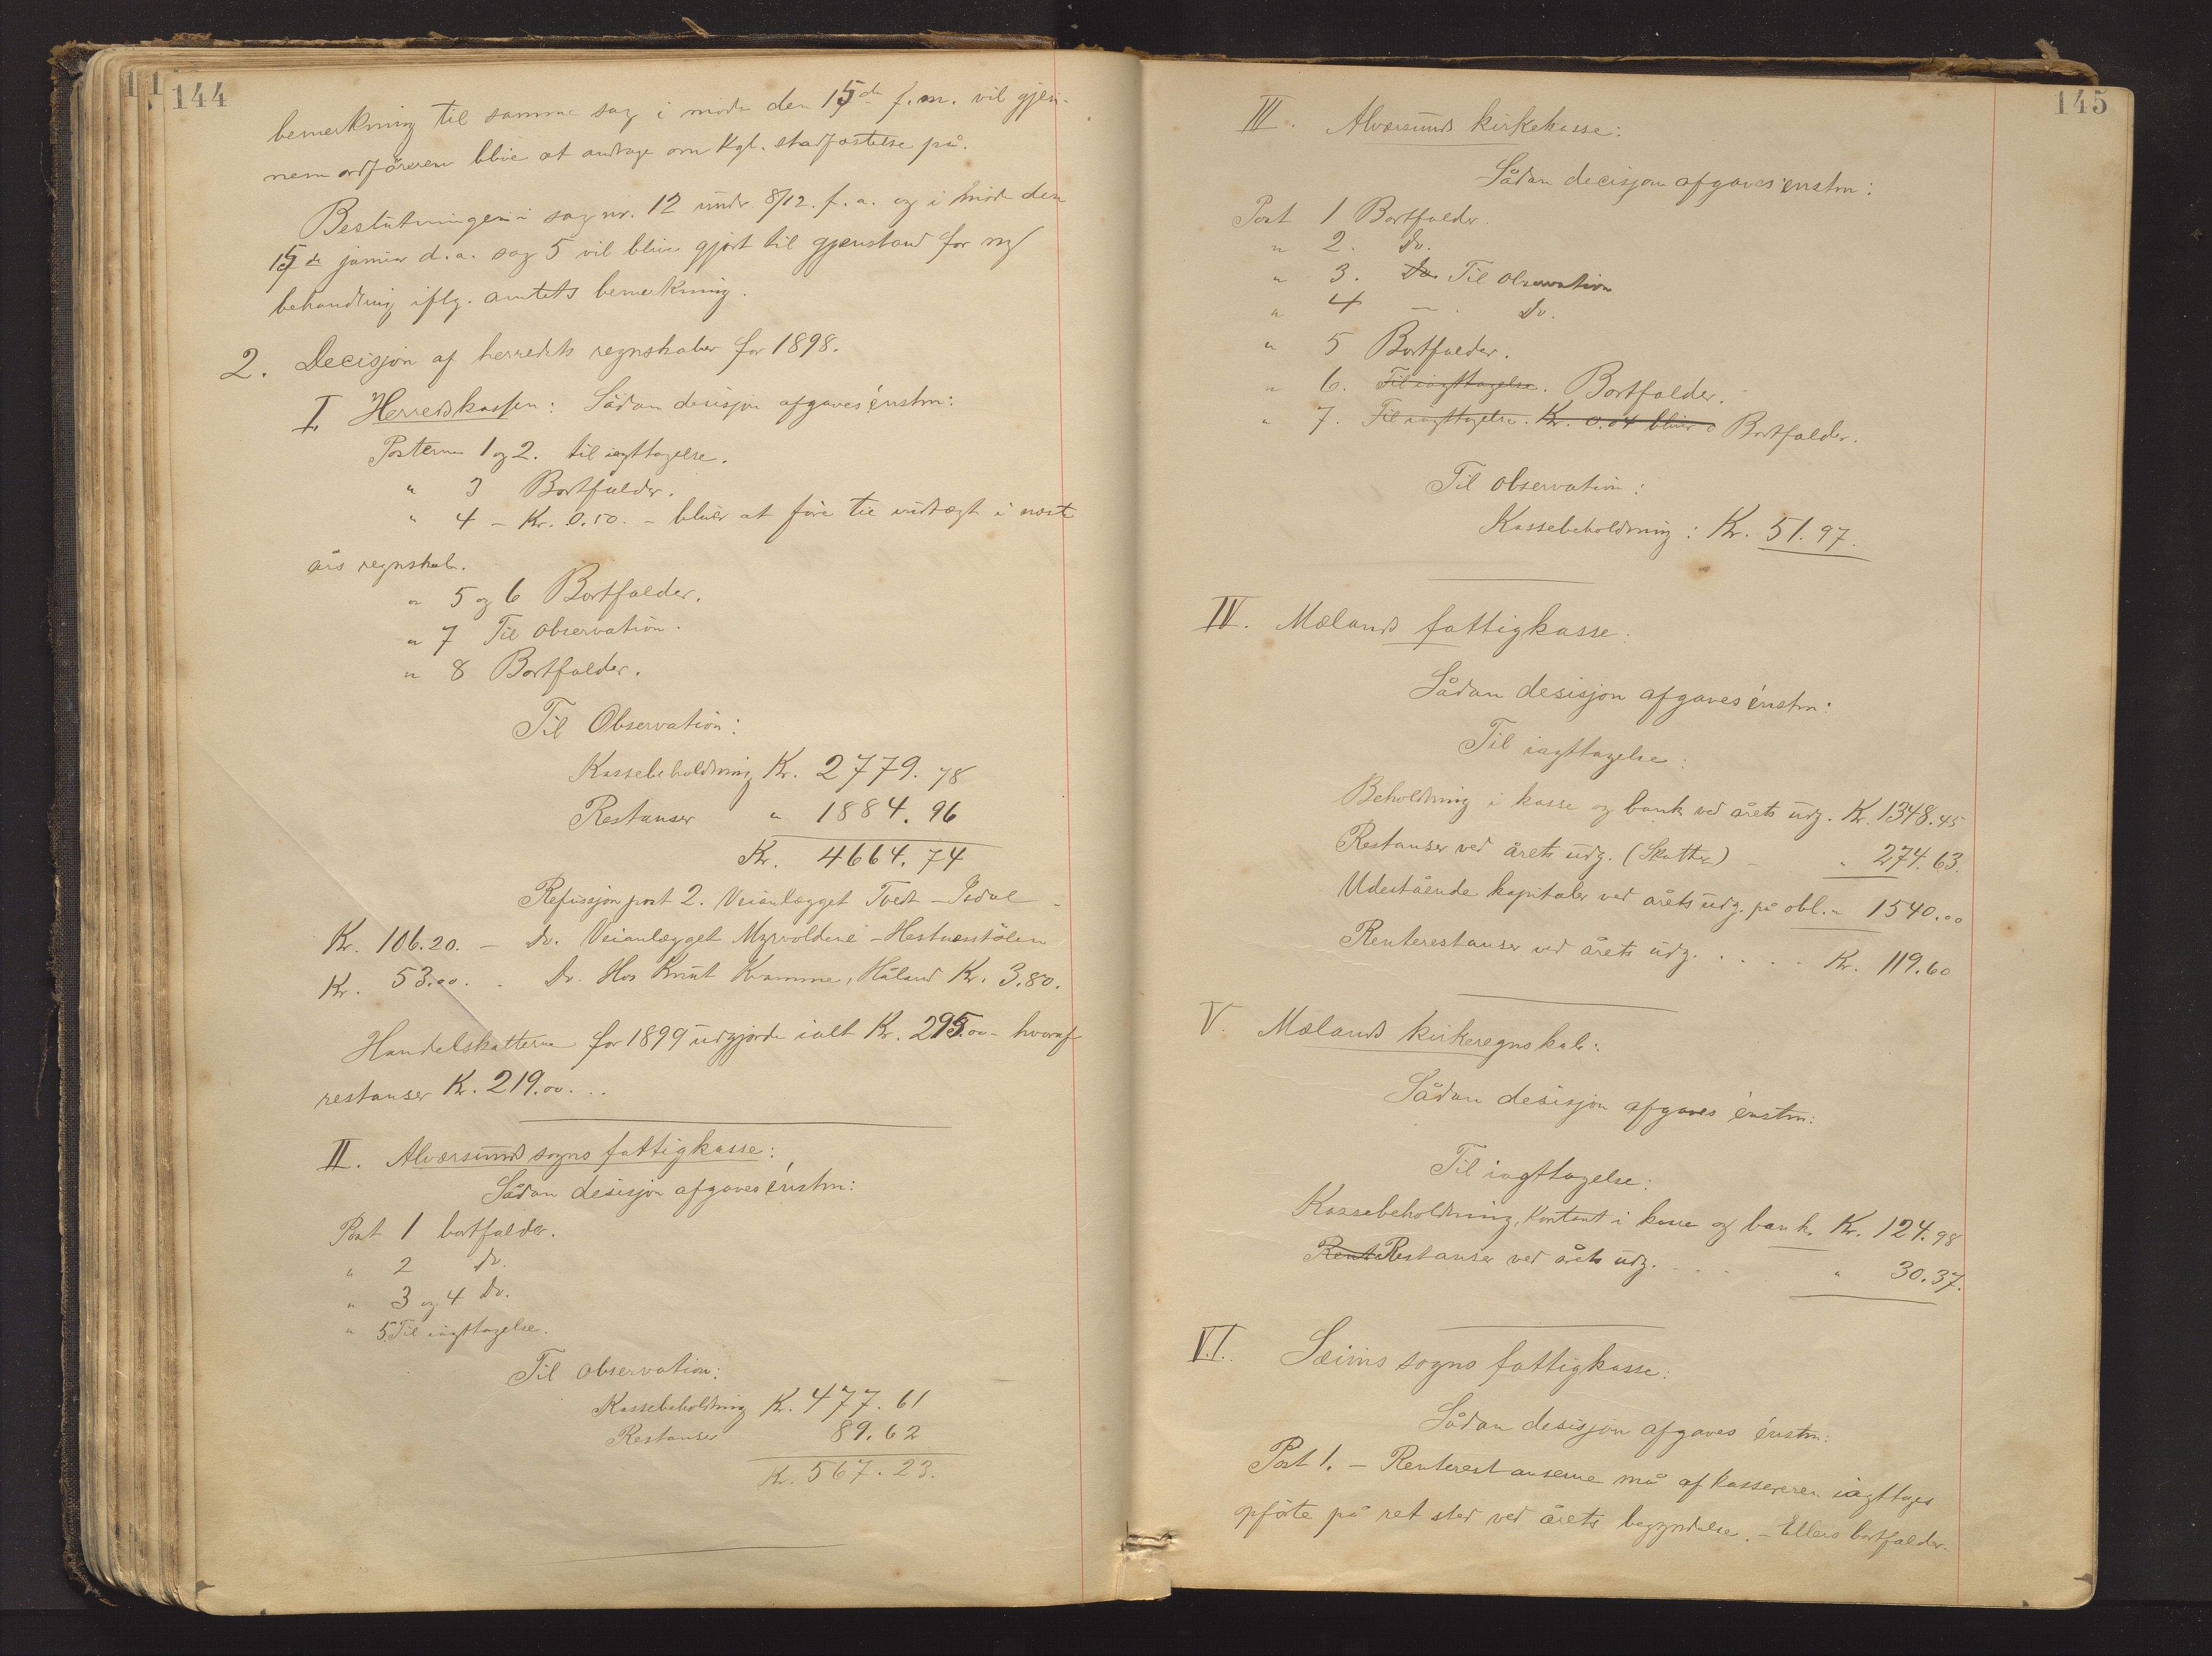 144
bemerkning til samme sag i möde den 15de f.m. vil gjen-
nem ordföreren blive at andrage om Kgl. stadfæstelse på.
Beslutningen i sag nr. 12 under 8/12. f.a. og i möde den
15de januar d.a. sag 5 vil blive gjort til gjenstand for ny
behandling iflg. amtets bemerkning.
2. Decisjon af herredets regnskaber for 1898.
I. Herredskassen: Sådan desisjon afgaves énstm:
Posterne 1 og 2. til iagttagelse.
" 3 Bortfalder.
" 4 – Kr. 0.50. – bliver at före til indtægt i næste
års regnskab.
" 5 og 6 Bortfalder.
" 7 Til observation.
" 8 Bortfalder.
Til Observation:
Kassebeholdning Kr. 2779.78
Restanser " 1884.96
Kr. 4664.74
Refusjon post 2. Veianlægget Tvedt – Isdal –
Kr. 106.20. – Do. Veianlægget Myrvoldene – Hestnesstölen
Kr. 53.00. Do. Hos Knut Kramme, Håland Kr. 3.80.
Handelskatterne for 1899 udgjorde ialt Kr. 295.00 – hvoraf
restanser Kr. 219.00...
II. Alversunds sogns fattigkasse:
Sådan desisjon afgaves énstm:
Post 1 bortfalder.
" 2 Do.
" 3 og 4 Do.
" 5. Til iagttagelse.
Til observation:
Kassebeholdning Kr. 477.61
Restanser 89.62
Kr. 567.23.
145
III. Alversunds kirkekasse:
Sådan decisjon afgaves énstm:
Post 1 Bortfalder.
" 2. Do.
" 3. Do. Til observation
" 4 – Do.
" 5 Bortfalder.
" 6. Til iagttagelse. Bortfalder.
" 7. Til iagttagelse. Kr. 0.04 bliver Bortfalder.
Til observation:
Kassebeholdning: Kr. 51.97.
IV. Mælands fattigkasse:
Sådan desisjon afgaves énstm:
Til iagttagelse:
Beholdning i kasse og bank ved årets udg. Kr. 1348.45
Restanser ved årets udg. (Skatter) – " 274.63.
Udestående kapitaler ved årets udg. på obl. " 1540.00
Renterestanser ved årets udg. . . . . Kr. 119.60
V. Mælands kirkeregnskab:
Sådan desisjon afgaves énstm:
Til iagttagelse:
Kassebeholdning, Kontant i kasse og bank. Kr. 124.98
Rent Restanser ved årets udg. . . . " 30.37.
VI. Seims sogns fattigkasse:
Sådan desisjon afgaves énstm:
Post 1. – Renterestanserne må af kassereren iagttages
opförte på ret sted ved årets begyndelse. – Ellers bortfalder.